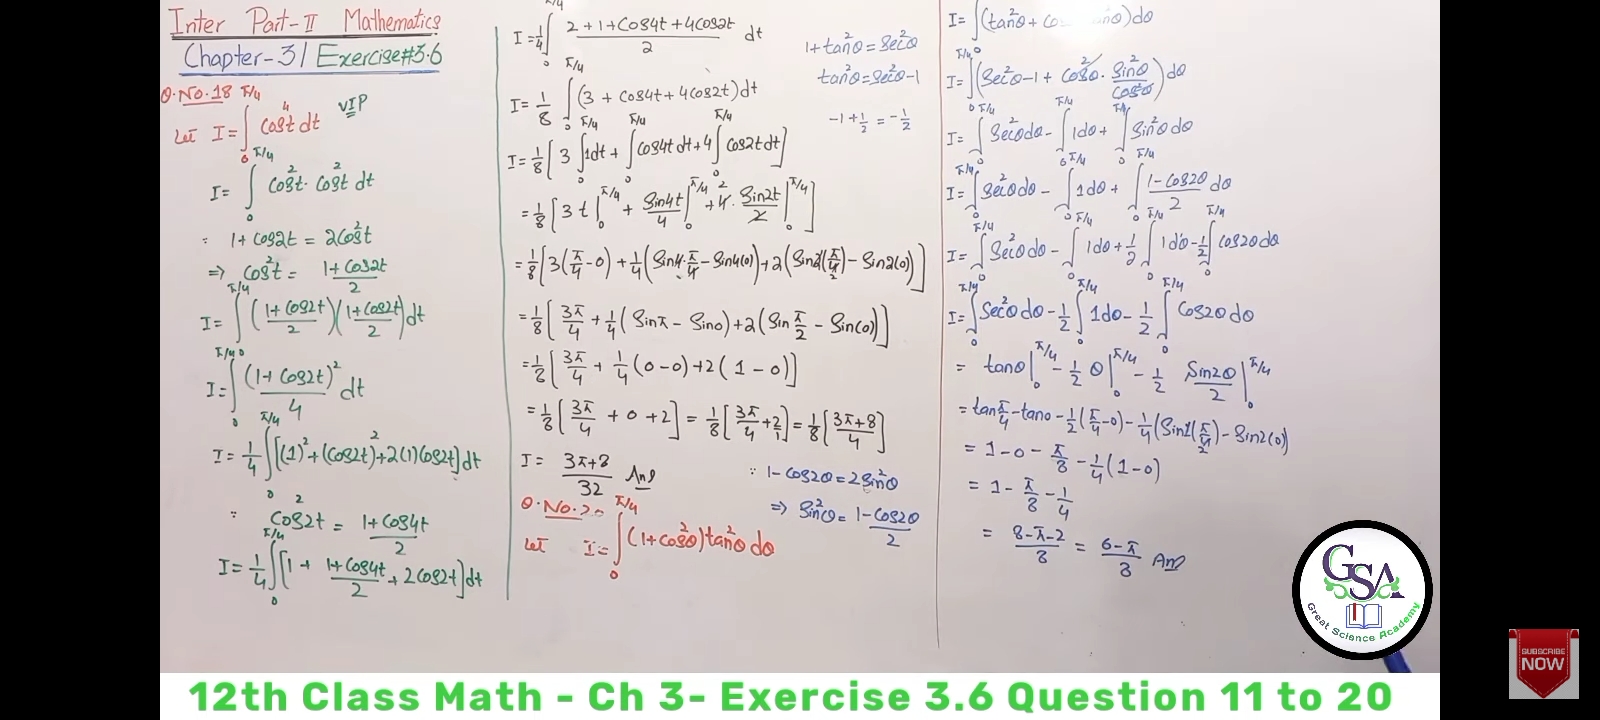 Inter Part-II Mathematics
Chapter-3/Exercise#3.6
Q.No.18
VIP
Let I=∫₀^{π/4} cos⁴t dt
I= ∫₀^{π/4} cos²t · cos²t dt
∵ 1+cos2t = 2cos²t
⇒ cos²t = (1+cos2t)/2
I=∫₀^{π/4} ((1+cos2t)/2)((1+cos2t)/2)dt
I=∫₀^{π/4} (1+cos2t)²/4 dt
I=1/4 ∫₀^{π/4} [(1)²+(cos2t)²+2(1)cos2t]dt
∵ cos²2t = (1+cos4t)/2
I=1/4 ∫₀^{π/4} [1+ (1+cos4t)/2 + 2cos2t]dt
I=1/4 ∫₀^{π/4} (2+1+cos4t+4cos2t)/2 dt
I=1/8 ∫₀^{π/4} (3+cos4t+4cos2t)dt
I=1/8 [3 ∫₀^{π/4} 1dt + ∫₀^{π/4} cos4t dt + 4 ∫₀^{π/4} cos2t dt]
=1/8 [3t|₀^{π/4} + sin4t/4|₀^{π/4} + 4² · sin2t/2|₀^{π/4}]
=1/8 [3(π/4-0)+1/4(sin4·π/4-sin4(0))+2(sin2(π/4)-sin2(0))]
=1/8 [3π/4+1/4(sinπ-sin0)+2(sin π/2-sin(0))]
=1/8 [3π/4+1/4(0-0)+2(1-0)]
=1/8 [3π/4+0+2] = 1/8 [3π/4+2/1] = 1/8 [(3π+8)/4]
I= (3π+8)/32 Ans
Q.No.20
Let I=∫₀^{π/4} (1+cos²θ)tan²θ dθ
1+tan²θ=sec²θ
tan²θ=sec²θ-1
-1+1/2=-1/2
∵ 1-cos2θ=2sin²θ
⇒ sin²θ= (1-cos2θ)/2
I=∫₀^{π/4} (tan²θ+cos²θ tan²θ)dθ
I=∫₀^{π/4} (sec²θ-1+cos²θ · sin²θ/cos²θ)dθ
I=∫₀^{π/4} sec²θdθ-∫₀^{π/4} 1dθ+∫₀^{π/4} sin²θdθ
I=∫₀^{π/4} sec²θdθ-∫₀^{π/4} 1dθ+∫₀^{π/4} (1-cos2θ)/2 dθ
I=∫₀^{π/4} sec²θdθ-∫₀^{π/4} 1dθ+1/2∫₀^{π/4} 1dθ-1/2∫₀^{π/4} cos2θdθ
I=∫₀^{π/4} sec²θdθ-1/2∫₀^{π/4} 1dθ-1/2∫₀^{π/4} cos2θdθ
= tanθ|₀^{π/4} - 1/2 θ|₀^{π/4} - 1/2 sin2θ/2|₀^{π/4}
=tan π/4-tan0-1/2(π/4-0)-1/4(sin2(π/4)-sin2(0))
= 1-0-π/8-1/4(1-0)
= 1-π/8-1/4
= (8-π-2)/8 = (6-π)/8 Ans
GSA
Great Science Academy
SUBSCRIBE
NOW
12th Class Math - Ch 3- Exercise 3.6 Question 11 to 20